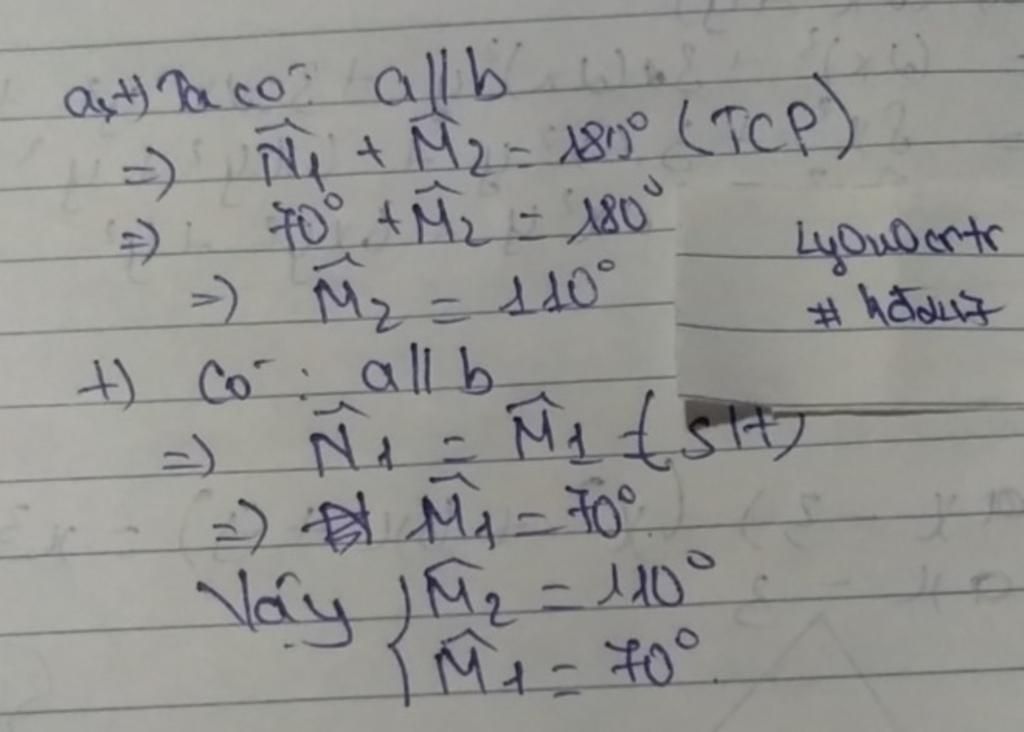 a, +) Ta có: a // b
=) N̂1 + M̂2 = 180° (TCP)
=) 70° + M̂2 = 180°
=) M̂2 = 110°
+) Có: a // b
=) N̂1 = M̂1 (slt)
=) M̂1 = 70°
Vậy { M̂2 = 110°
M̂1 = 70°.